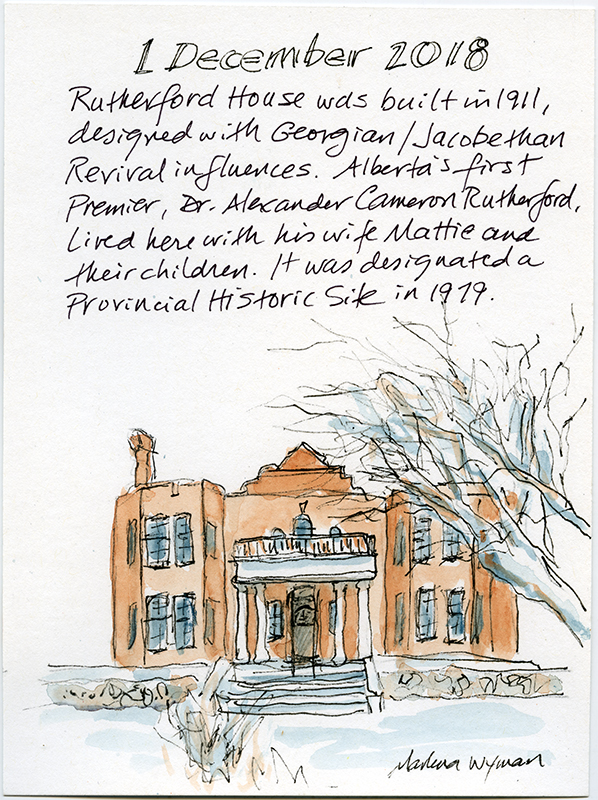 1 December 2018
Rutherford House was built in 1911,
designed with Georgian/Jacobethan
Revival influences. Alberta's first
Premier, Dr. Alexander Cameron Rutherford,
lived here with his wife Mattie and
their children. It was designated a
Provincial Historic Site in 1979.
Marlena Wyman